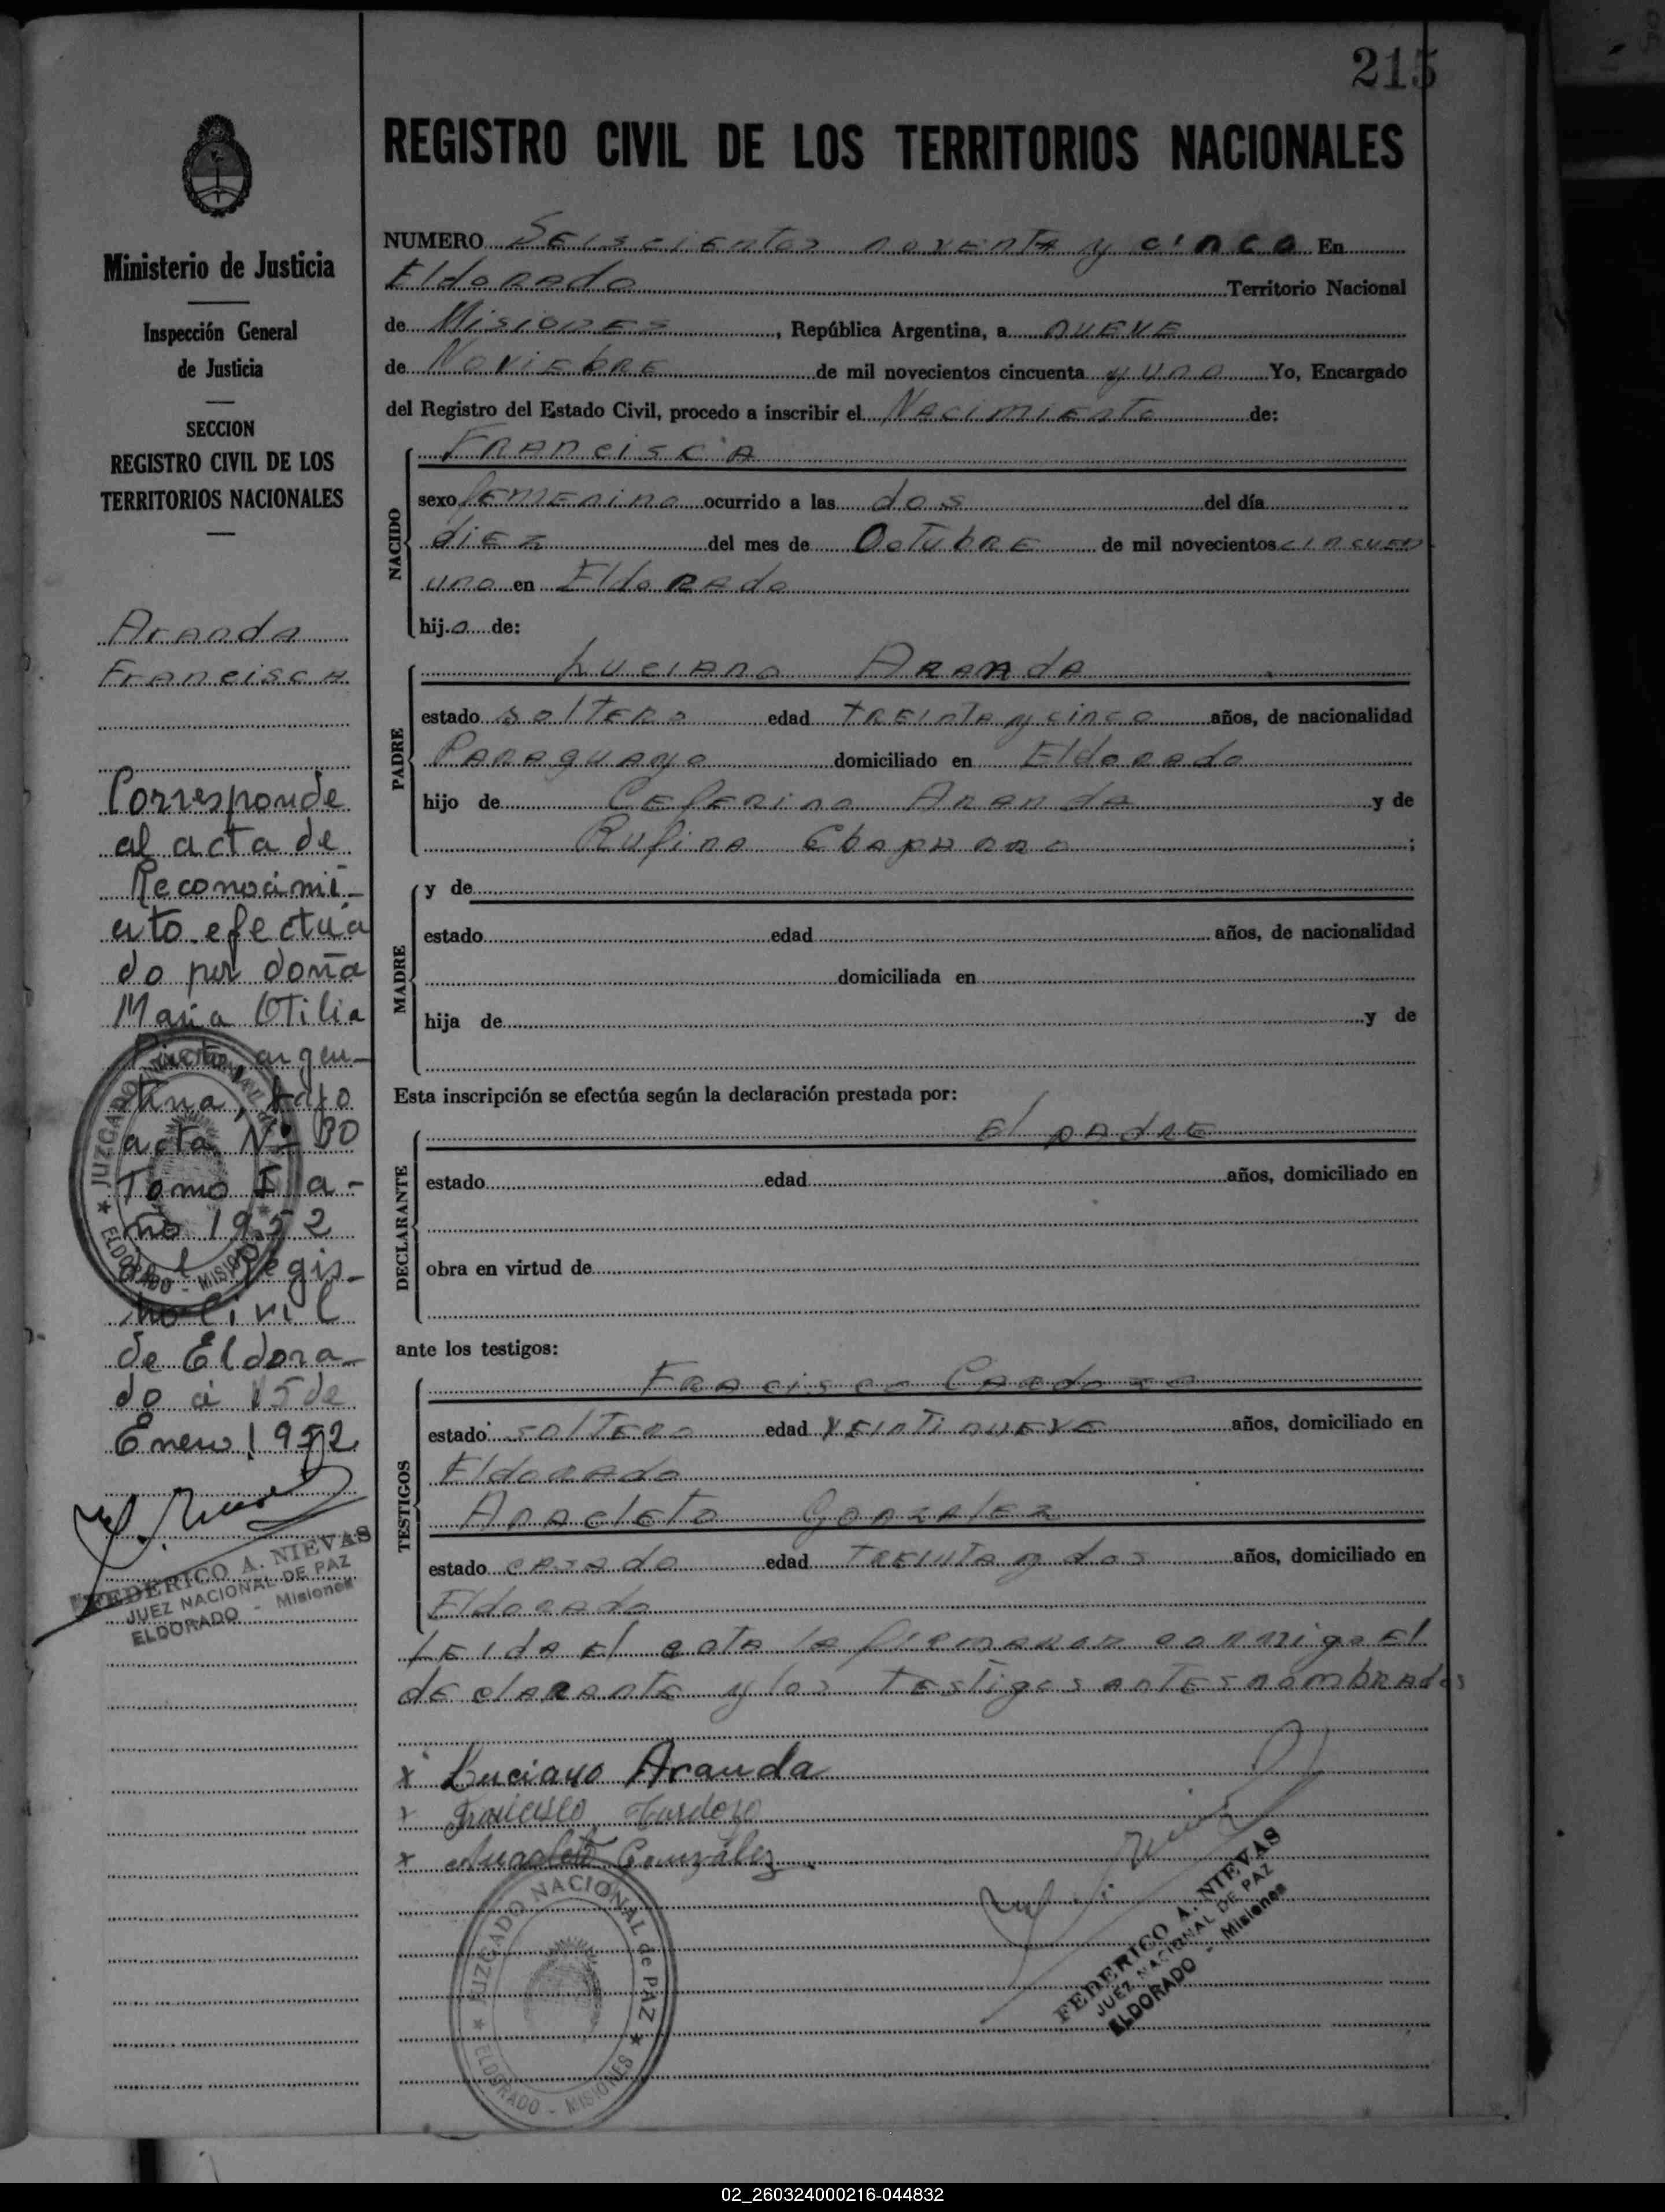 215
REGISTRO CIVIL DE LOS TERRITORIOS NACIONALES
Ministerio de Justicia
Inspección General
de Justicia
SECCION
REGISTRO CIVIL DE LOS
TERRITORIOS NACIONALES
Aranda
Francisca
Corresponde
al acta de
Reconocimi-
ento efectua
do por doña
Maria Otilia
argen-
tina, bajo
acta Nº
Tomo I a-
ño 1952
del Regis-
tro Civil
de Eldora-
do a 15 de
Enero 1952
FEDERICO A. NIEVAS
JUEZ NACIONAL DE PAZ
ELDORADO - Misiones
JUZGADO NACIONAL de PAZ
ELDORADO - MISIONES
NUMERO Seiscientos noventa y cinco En
Eldorado Territorio Nacional
de Misiones, República Argentina, a nueve
de Noviebre de mil novecientos cincuenta y uno Yo, Encargado
del Registro del Estado Civil, procedo a inscribir el Nacimiento de:
NACIDO
Francisca
sexo femenino ocurrido a las dos del día
diez del mes de Octubre de mil novecientos cincuen
uno en Eldorado
hij.o de:
PADRE
Luciano Aranda
estado soltero edad treinta y cinco años, de nacionalidad
Paraguayo domiciliado en Eldorado
hijo de Ceferino Aranda y de
Rufina ;
MADRE
y de
estado edad años, de nacionalidad
domiciliada en
hija de y de
Esta inscripción se efectúa según la declaración prestada por:
DECLARANTE
El padre
estado edad años, domiciliado en
obra en virtud de
ante los testigos:
TESTIGOS
Fracisco Cardozo
estado soltero edad veintinueve años, domiciliado en
Eldorado
Anacleto Gonzalez
estado casado edad treinta y dos años, domiciliado en
Eldorado
Leida el acta la firmaron conmigo el
declarante y los testigos antes nombrados
x Luciano Aranda
x Francisco Cardozo
x Anacleto González
JUZGADO NACIONAL de PAZ
ELDORADO - MISIONES
FEDERICO A. NIEVAS
JUEZ NACIONAL DE PAZ
ELDORADO - Misiones
02_260324000216-044832